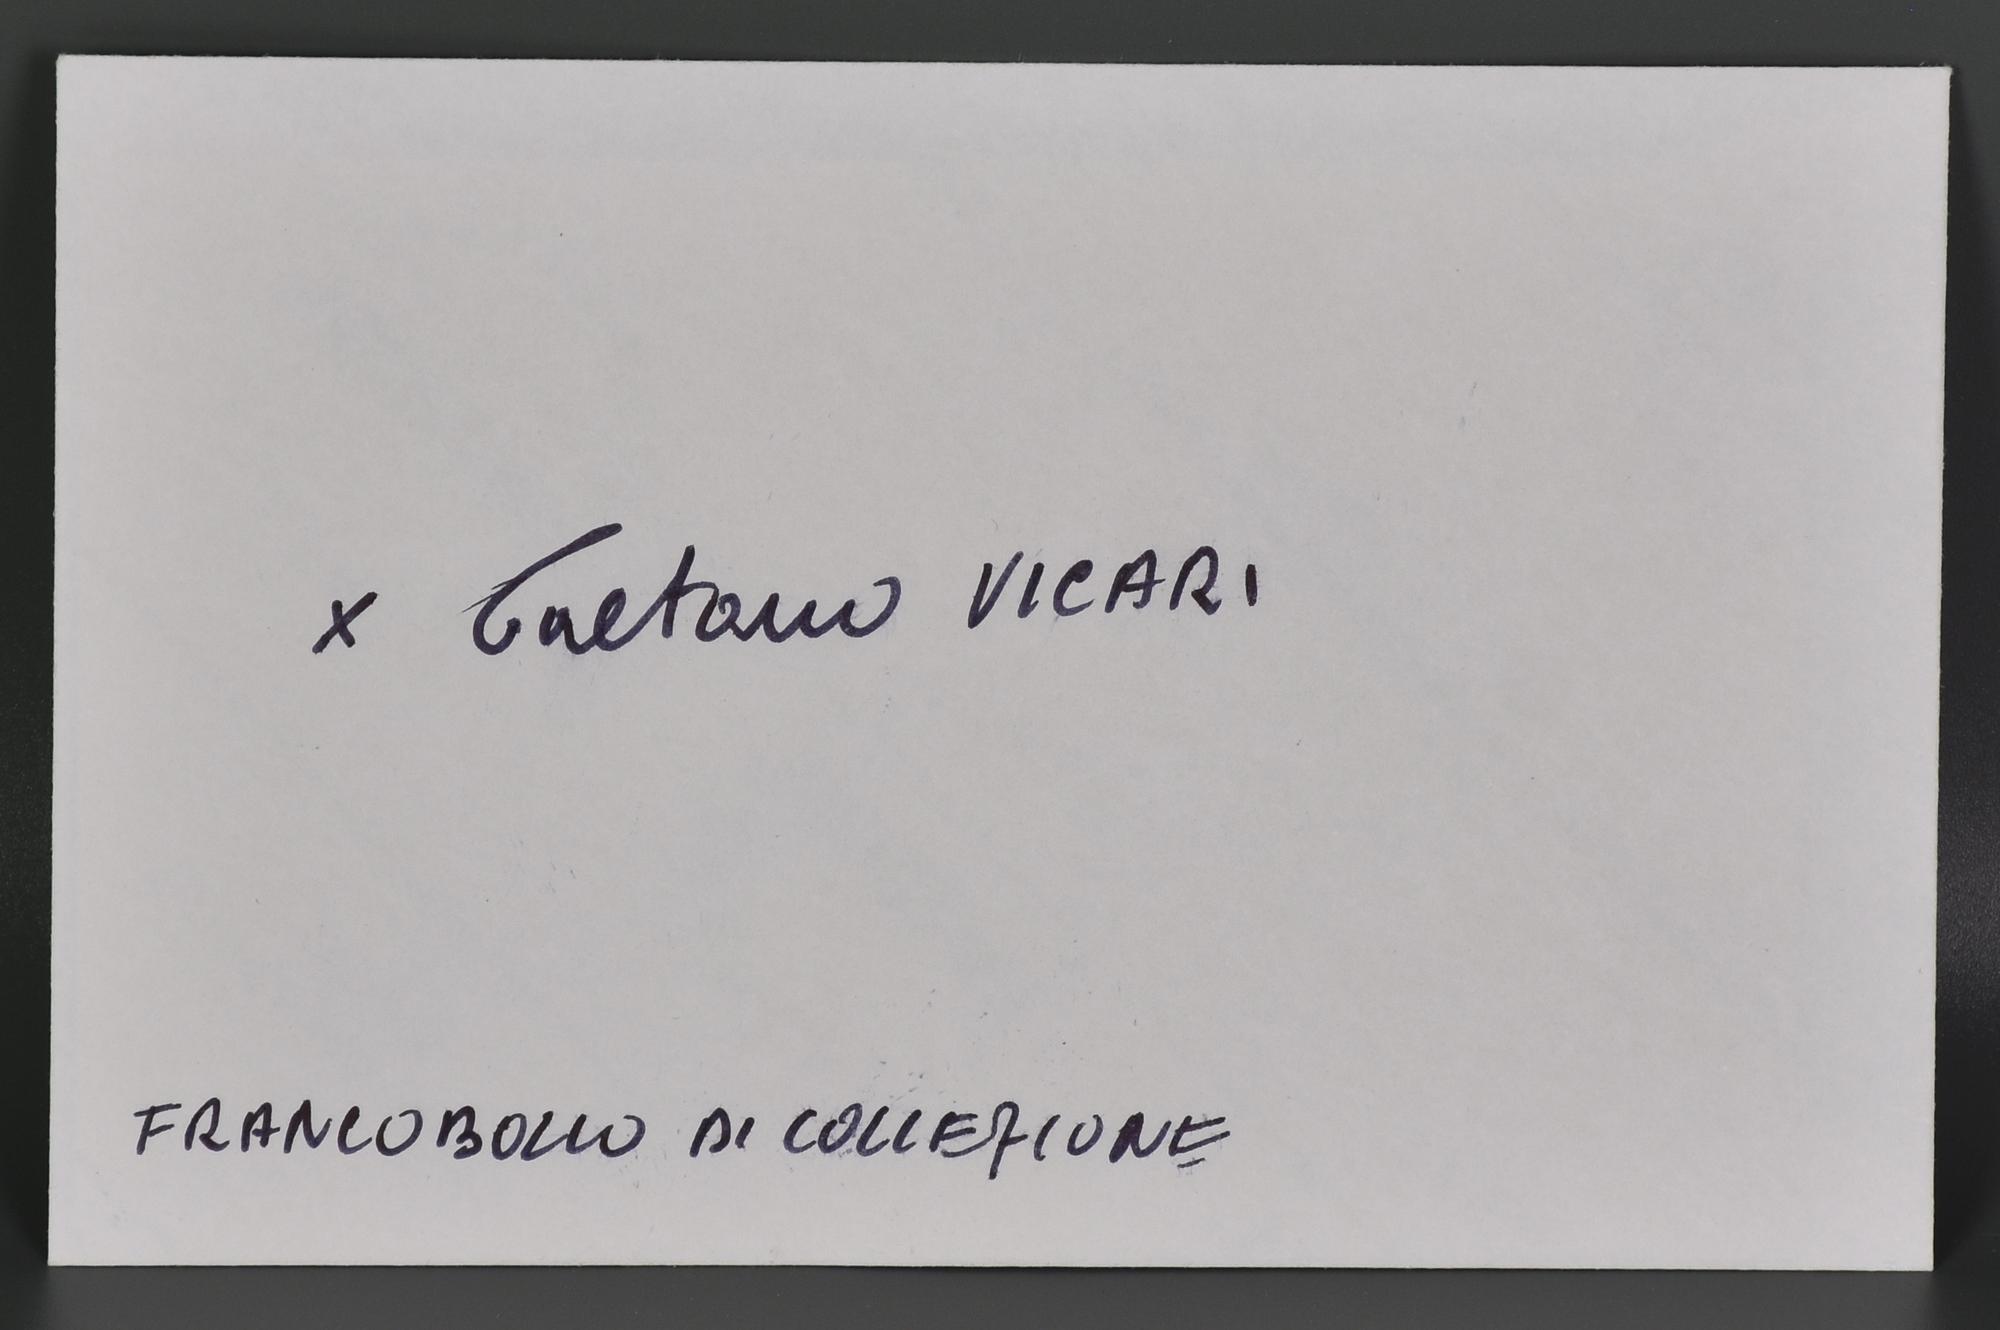 x Gaetano VICARI
FRANCOBOLLO DI COLLEZIONE